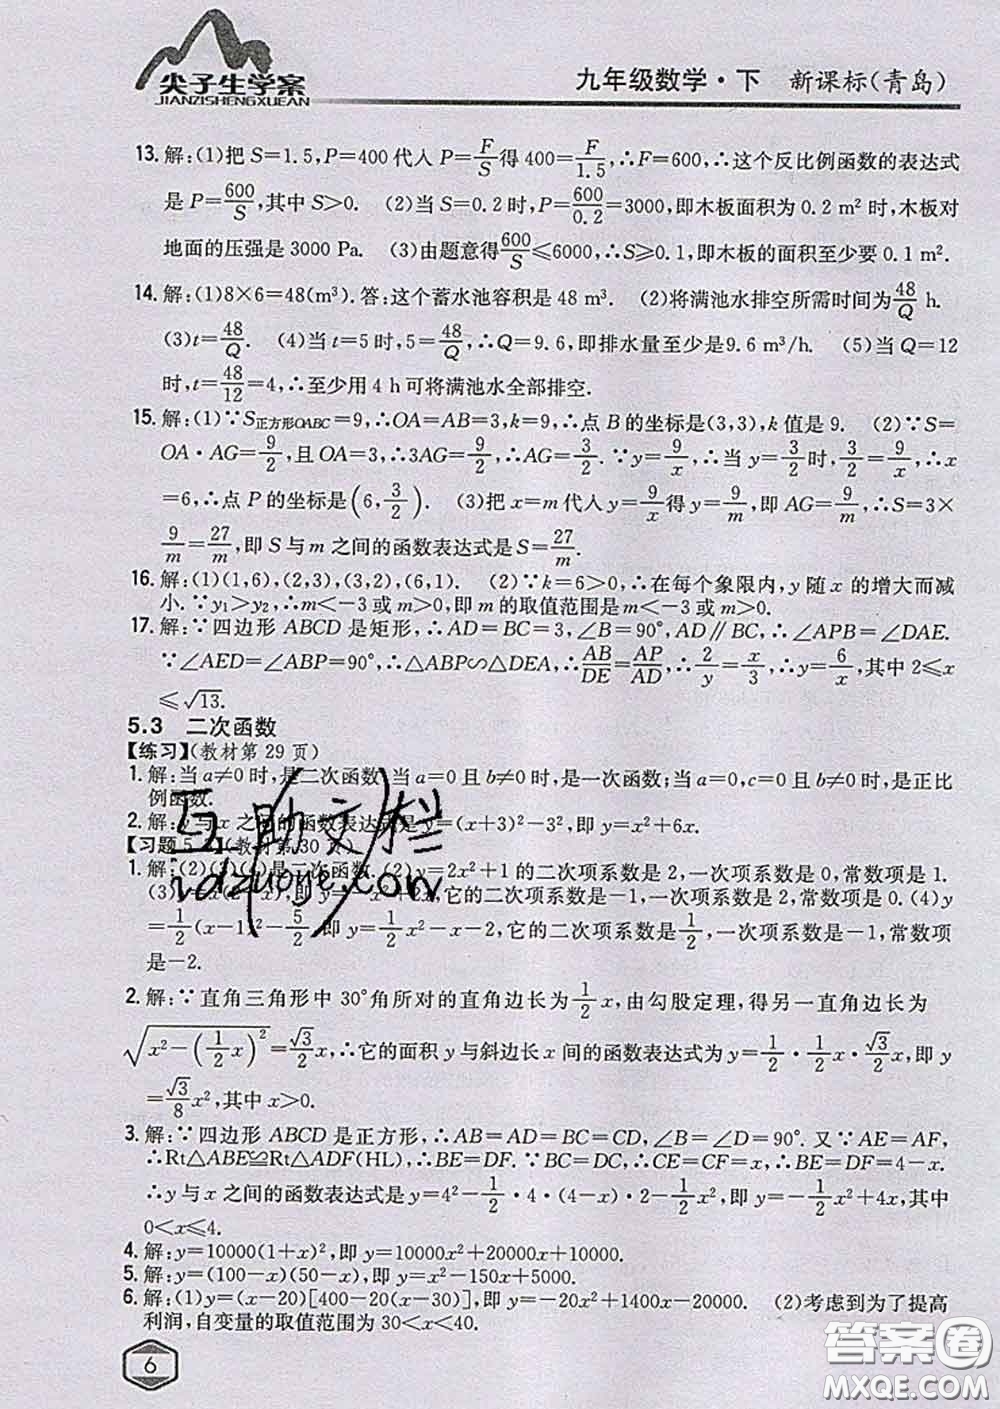 尖子生学案
JIANZISHENGXUEAN
九年级数学·下 新课标(青岛)
13.解:(1)把 S=1.5,P=400 代入 P=F/S得 400=F/1.5,∴F=600,∴这个反比例函数的表达式
是 P=600/S,其中 S>0. (2)当 S=0.2 时,P=600/0.2=3000,即木板面积为 0.2 m²时,木板对
地面的压强是 3000 Pa. (3)由题意得600/S≤6000,∴S≥0.1,即木板的面积至少要 0.1 m².
14.解:(1)8×6=48(m³).答:这个蓄水池容积是 48 m³. (2)将满池水排空所需时间为48/Q h.
(3)t=48/Q. (4)当 t=5 时,5=48/Q,∴Q=9.6,即排水量至少是9.6 m³/h. (5)当 Q=12
时,t=48/12=4,∴至少用 4 h 可将满池水全部排空.
15.解:(1)∵S正方形OABC=9,∴OA=AB=3,k=9,∴点 B 的坐标是(3,3),k 值是 9. (2)∵S=
OA·AG=9/2,且 OA=3,∴3AG=9/2,∴AG=3/2.∵y=9/x,∴当 y=3/2时,3/2=9/x,∴x
=6,∴点 P 的坐标是(6,3/2). (3)把 x=m 代入 y=9/x得 y=9/m,即 AG=9/m,∴S=3×
9/m=27/m,即 S 与 m 之间的函数表达式是 S=27/m.
16.解:(1)(1,6),(2,3),(3,2),(6,1). (2)∵k=6>0,∴在每个象限内,y 随 x 的增大而减
小.∵y₁>y₂,∴m<-3 或 m>0,即 m 的取值范围是 m<-3 或 m>0.
17.解:∵四边形 ABCD 是矩形,∴AD=BC=3,∠B=90°,AD∥BC,∴∠APB=∠DAE.
∵∠AED=∠ABP=90°,∴△ABP∽△DEA,∴AB/DE=AP/AD,∴2/y=x/3,∴y=6/x,其中 2≤x
≤√13.
5.3 二次函数
【练习】(教材第 29 页)
1.解:当 a≠0 时,是二次函数;当 a=0 且 b≠0 时,是一次函数;当 a=0,c=0 且 b≠0 时,是正比
例函数.
2.解:y 与 x 之间的函数表达式是 y=(x+3)²-3²,即 y=x²+6x.
【习题 5.】(教材第 30 页)
1.解:(2)(3)(4)是二次函数.(2)y=2x²+1 的二次项系数是 2,一次项系数是 0,常数项是 1.
(3),即 y=-x²+2x,它的二次项系数是-1,一次项系数是 2,常数项是 0.(4)y
=1/2(x-1)²-5/2,即 y=1/2x²-x-2,它的二次项系数是1/2,一次项系数是-1,常数项
是-2.
2.解:∵直角三角形中 30°角所对的直角边长为1/2x,由勾股定理,得另一直角边长为
√(x²-(1/2x)²)=√3/2x,∴它的面积 y 与斜边长 x 间的函数表达式为 y=1/2·1/2x·√3/2x,即 y=
√3/8x²,其中 x>0.
3.解:∵四边形 ABCD 是正方形,∴AB=AD=BC=CD,∠B=∠D=90°.又∵AE=AF,
∴Rt△ABE≌Rt△ADF(HL),∴BE=DF.∵BC=DC,∴CE=CF=x,∴BE=DF=4-x.
∴y 与 x 之间的函数表达式是 y=4²-1/2·4·(4-x)·2-1/2x²,即 y=-1/2x²+4x,其中
0<x≤4.
4.解:y=10000(1+x)²,即 y=10000x²+20000x+10000.
5.解:y=(100-x)(50-x),即 y=x²-150x+5000.
6.解:(1)y=(x-20)[400-20(x-30)],即 y=-20x²+1400x-20000. (2)考虑到为了提高
利润,自变量的取值范围为 30<x<40.
互助文栏
6
答案圈
MXQE.COM